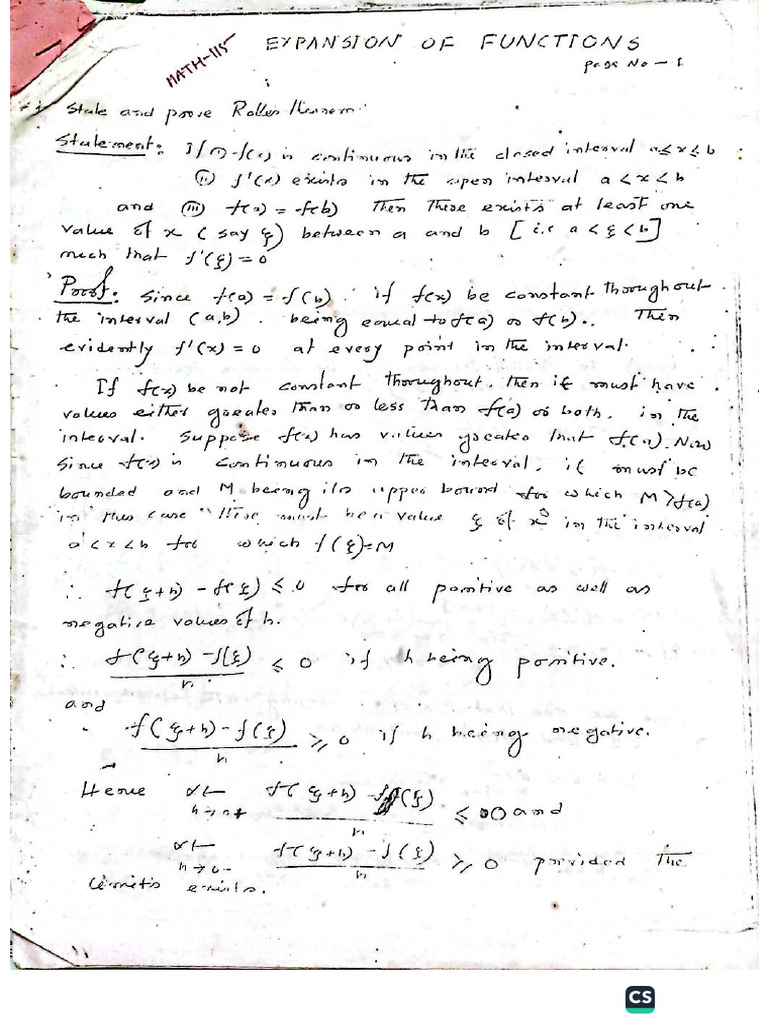 EXPANSION OF FUNCTIONS
MATH-115
page No - 1
State and prove Rolles theorem.
Statement: If (i) f(x) is continuous in the closed interval a≤x≤b
(ii) f'(x) exists in the open interval a<x<b
and (iii) f(a) = f(b) Then there exists at least one
value of x (say ξ) between a and b [i.e a<ξ<b]
such that f'(ξ)=0
Proof: Since f(a) = f(b). if f(x) be constant throughout
the interval (a,b). being equal to f(a) or f(b).. Then
evidently f'(x) = 0 at every point in the interval.
If f(x) be not constant throughout, then it must have
values either greater than or less than f(a) or both, in the
interval. Suppose f(x) has values greater that f(a). Now
Since f(x) is continuous in the interval, it must be
bounded and M being its upper bound for which M>f(a)
in this case there must be a value ξ of x in the interval
a<x<b for which f(ξ)=M
∴ f(ξ+h) - f(ξ) ≤ 0 for all positive as well as
negative values of h.
∴ f(ξ+h) - f(ξ) / h ≤ 0 if h being positive.
and
f(ξ+h) - f(ξ) / h ≥ 0 if h being negative.
Hence Lt h→0+ f(ξ+h) - f(ξ) / h ≤ 0 and
Lt h→0- f(ξ+h) - f(ξ) / h ≥ 0 provided the
limits exists.
CS